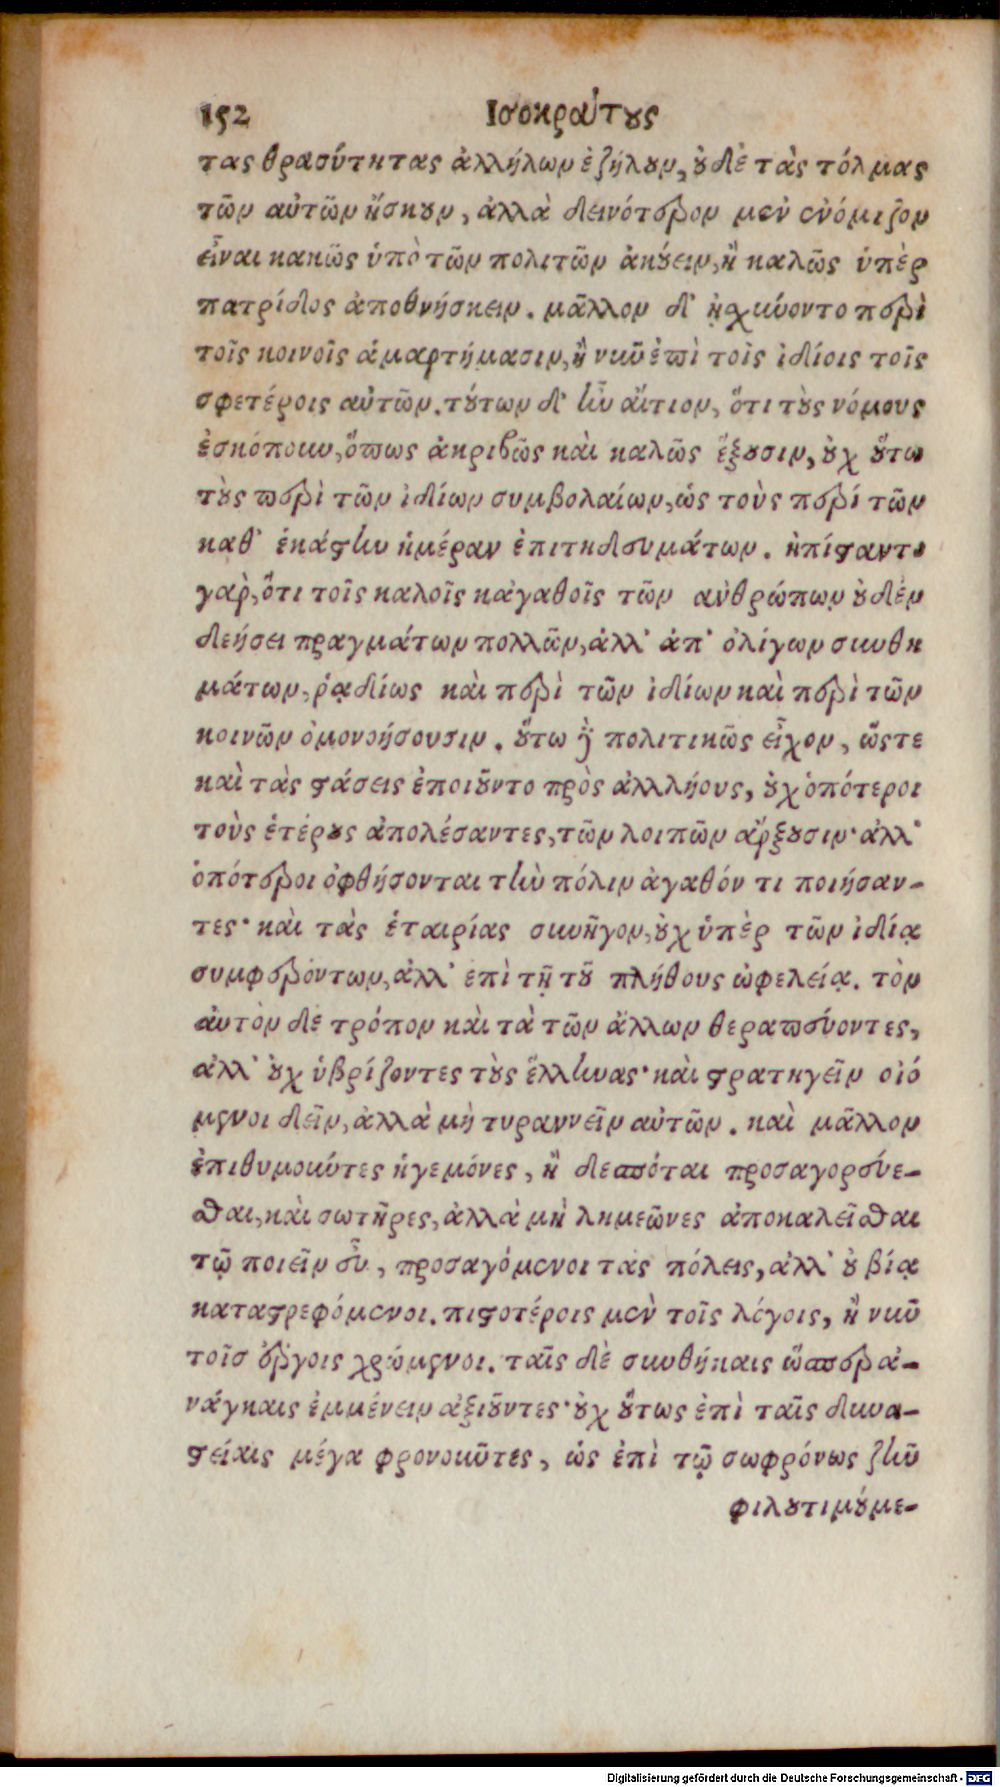 152 Ισοκράτους
τας θρασύτητας ἀλλήλων ἐζήλουν, οὐδὲ τὰς τόλμας
τῶν αὐτῶν ἤσκουν, ἀλλὰ δεινότερον μὲν ἐνόμιζον
εἶναι κακῶς ὑπὸ τῶν πολιτῶν ἀκούειν, ἢ καλῶς ὑπὲρ
πατρίδος ἀποθνήσκειν. μᾶλλον δ' ᾐσχύνοντο περὶ
τοῖς κοινοῖς ἁμαρτήμασιν, ἢ νῦν ἐπὶ τοῖς ἰδίοις τοῖς
σφετέροις αὐτῶν. τούτων δ' ἦν αἴτιον, ὅτι τοὺς νόμους
ἐσκόπουν, ὅπως ἀκριβῶς καὶ καλῶς ἕξουσιν, οὐχ οὕτω
τοὺς περὶ τῶν ἰδίων συμβολαίων, ὡς τοὺς περί τῶν
καθ' ἑκάστην ἡμέραν ἐπιτηδευμάτων. ἠπίσταντο
γὰρ, ὅτι τοῖς καλοῖς κἀγαθοῖς τῶν ανθρώπων οὐδὲν
δεήσει πραγμάτων πολλῶν, ἀλλ' ἀπ' ὀλίγων συνθη
μάτων, ῥᾳδίως καὶ περὶ τῶν ἰδίων καὶ περὶ τῶν
κοινῶν ὁμονοήσουσιν. οὕτω γὰρ πολιτικῶς εἶχον, ὥςτε
καὶ τὰς στάσεις ἐποιοῦντο πρὸς ἀλλήους, οὐχ ὁπότεροι
τοὺς ἑτέρους ἀπολέσαντες, τῶν λοιπῶν ἄρξουσιν· ἀλλ'
ὁπότεροι ὀφθήσονται τὴν πόλιν ἀγαθόν τι ποιήσαν-
τες· καὶ τὰς ἑταιρίας συνῆγον, οὐχ ὑπὲρ τῶν ἰδίᾳ
συμφερόντων, ἀλλ' ἐπὶ τῇ τοῦ πλήθους ὠφελείᾳ. τὸν
αὐτὸν δὲ τρόπον καὶ τὰ τῶν ἄλλων θεραπεύοντες,
ἀλλ' οὐχ ὑβρίζοντες τοὺς ἕλληνας· καὶ στρατηγεῖν οἰό
μενοι δεῖν, ἀλλὰ μὴ τυραννεῖν αὐτῶν. καὶ μᾶλλον
ἐπιθυμοῦντες ἡγεμόνες, ἢ δεσπόται προσαγορεύε-
σθαι, καὶ σωτῆρες, ἀλλὰ μὴ λημεῶνες ἀποκαλεῖσθαι
τῷ ποιεῖν εὖ, προσαγόμενοι τὰς πόλεις, ἀλλ' οὐ βίᾳ
καταστρεφόμενοι. πιστοτέροις μὲν τοῖς λόγοις, ἢ νῦν
τοῖσ ὅρκοις χρώμενοι. ταῖς δὲ συνθήκαις ὥσπερ ἀ-
νάγκαις ἐμμένειν ἀξιοῦντες· οὐχ οὕτως ἐπὶ ταῖς δυνα-
στείαις μέγα φρονοῦντες, ὡς ἐπὶ τῷ σωφρόνως ζῆν
φιλοτιμούμε-
Digitalisierung gefördert durch die Deutsche Forschungsgemeinschaft - DFG